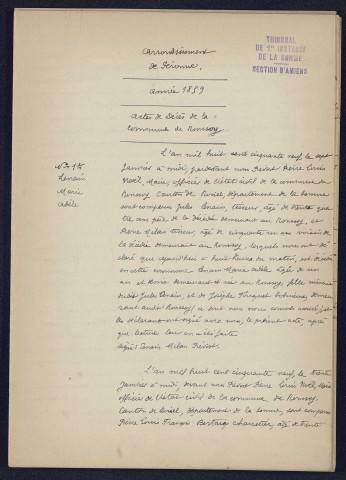 Arrondissement
de Péronne.
TRIBUNAL
DE 1re INSTANCE
DE LA SOMME
SECTION D'AMIENS
Année 1859
Actes de Décès de la
Commune de Ronssoy
L'an mil huit cent cinquante neuf, le sept
Janvier à midi, pardevant nous Prévost Pierre Louis
Noël, Maire, officier de l'état civil de la commune de
Ronssoy Canton de Roisel, département de la Somme
sont comparus Jules Lenain, tisseur, âgé de trente
trois ans père de la décédée demeurant au Ronssoy, et
Pierre Milan tisseur, âgé de cinquante un ans voisin de
la décédée demeurant au Ronssoy, lesquels nous ont dé
claré que aujourd'hui à huit heures du matin, est décédée
en cette commune Lenain Marie Adèle âgée de un
an et demi demeurant et née au Ronssoy, fille mineure
dudit Jules Lenain, et de Josèphe
audit Ronssoy,
les déclarants ont signé avec nous, le présent acte, après
que lecture leur en a été faite
Signé: Lenain Milan Prévost.
N° 1
Lenain
Marie
Adèle
L'an mil huit cent cinquante neuf, le trente
Janvier à midi, devant nous Prévost Pierre Louis Noël, Maire
officier de l'état civil de la commune de Ronssoy,
Canton de Roisel, département de la Somme, sont comparus
Pierre Louis François charretier, âgé de trente